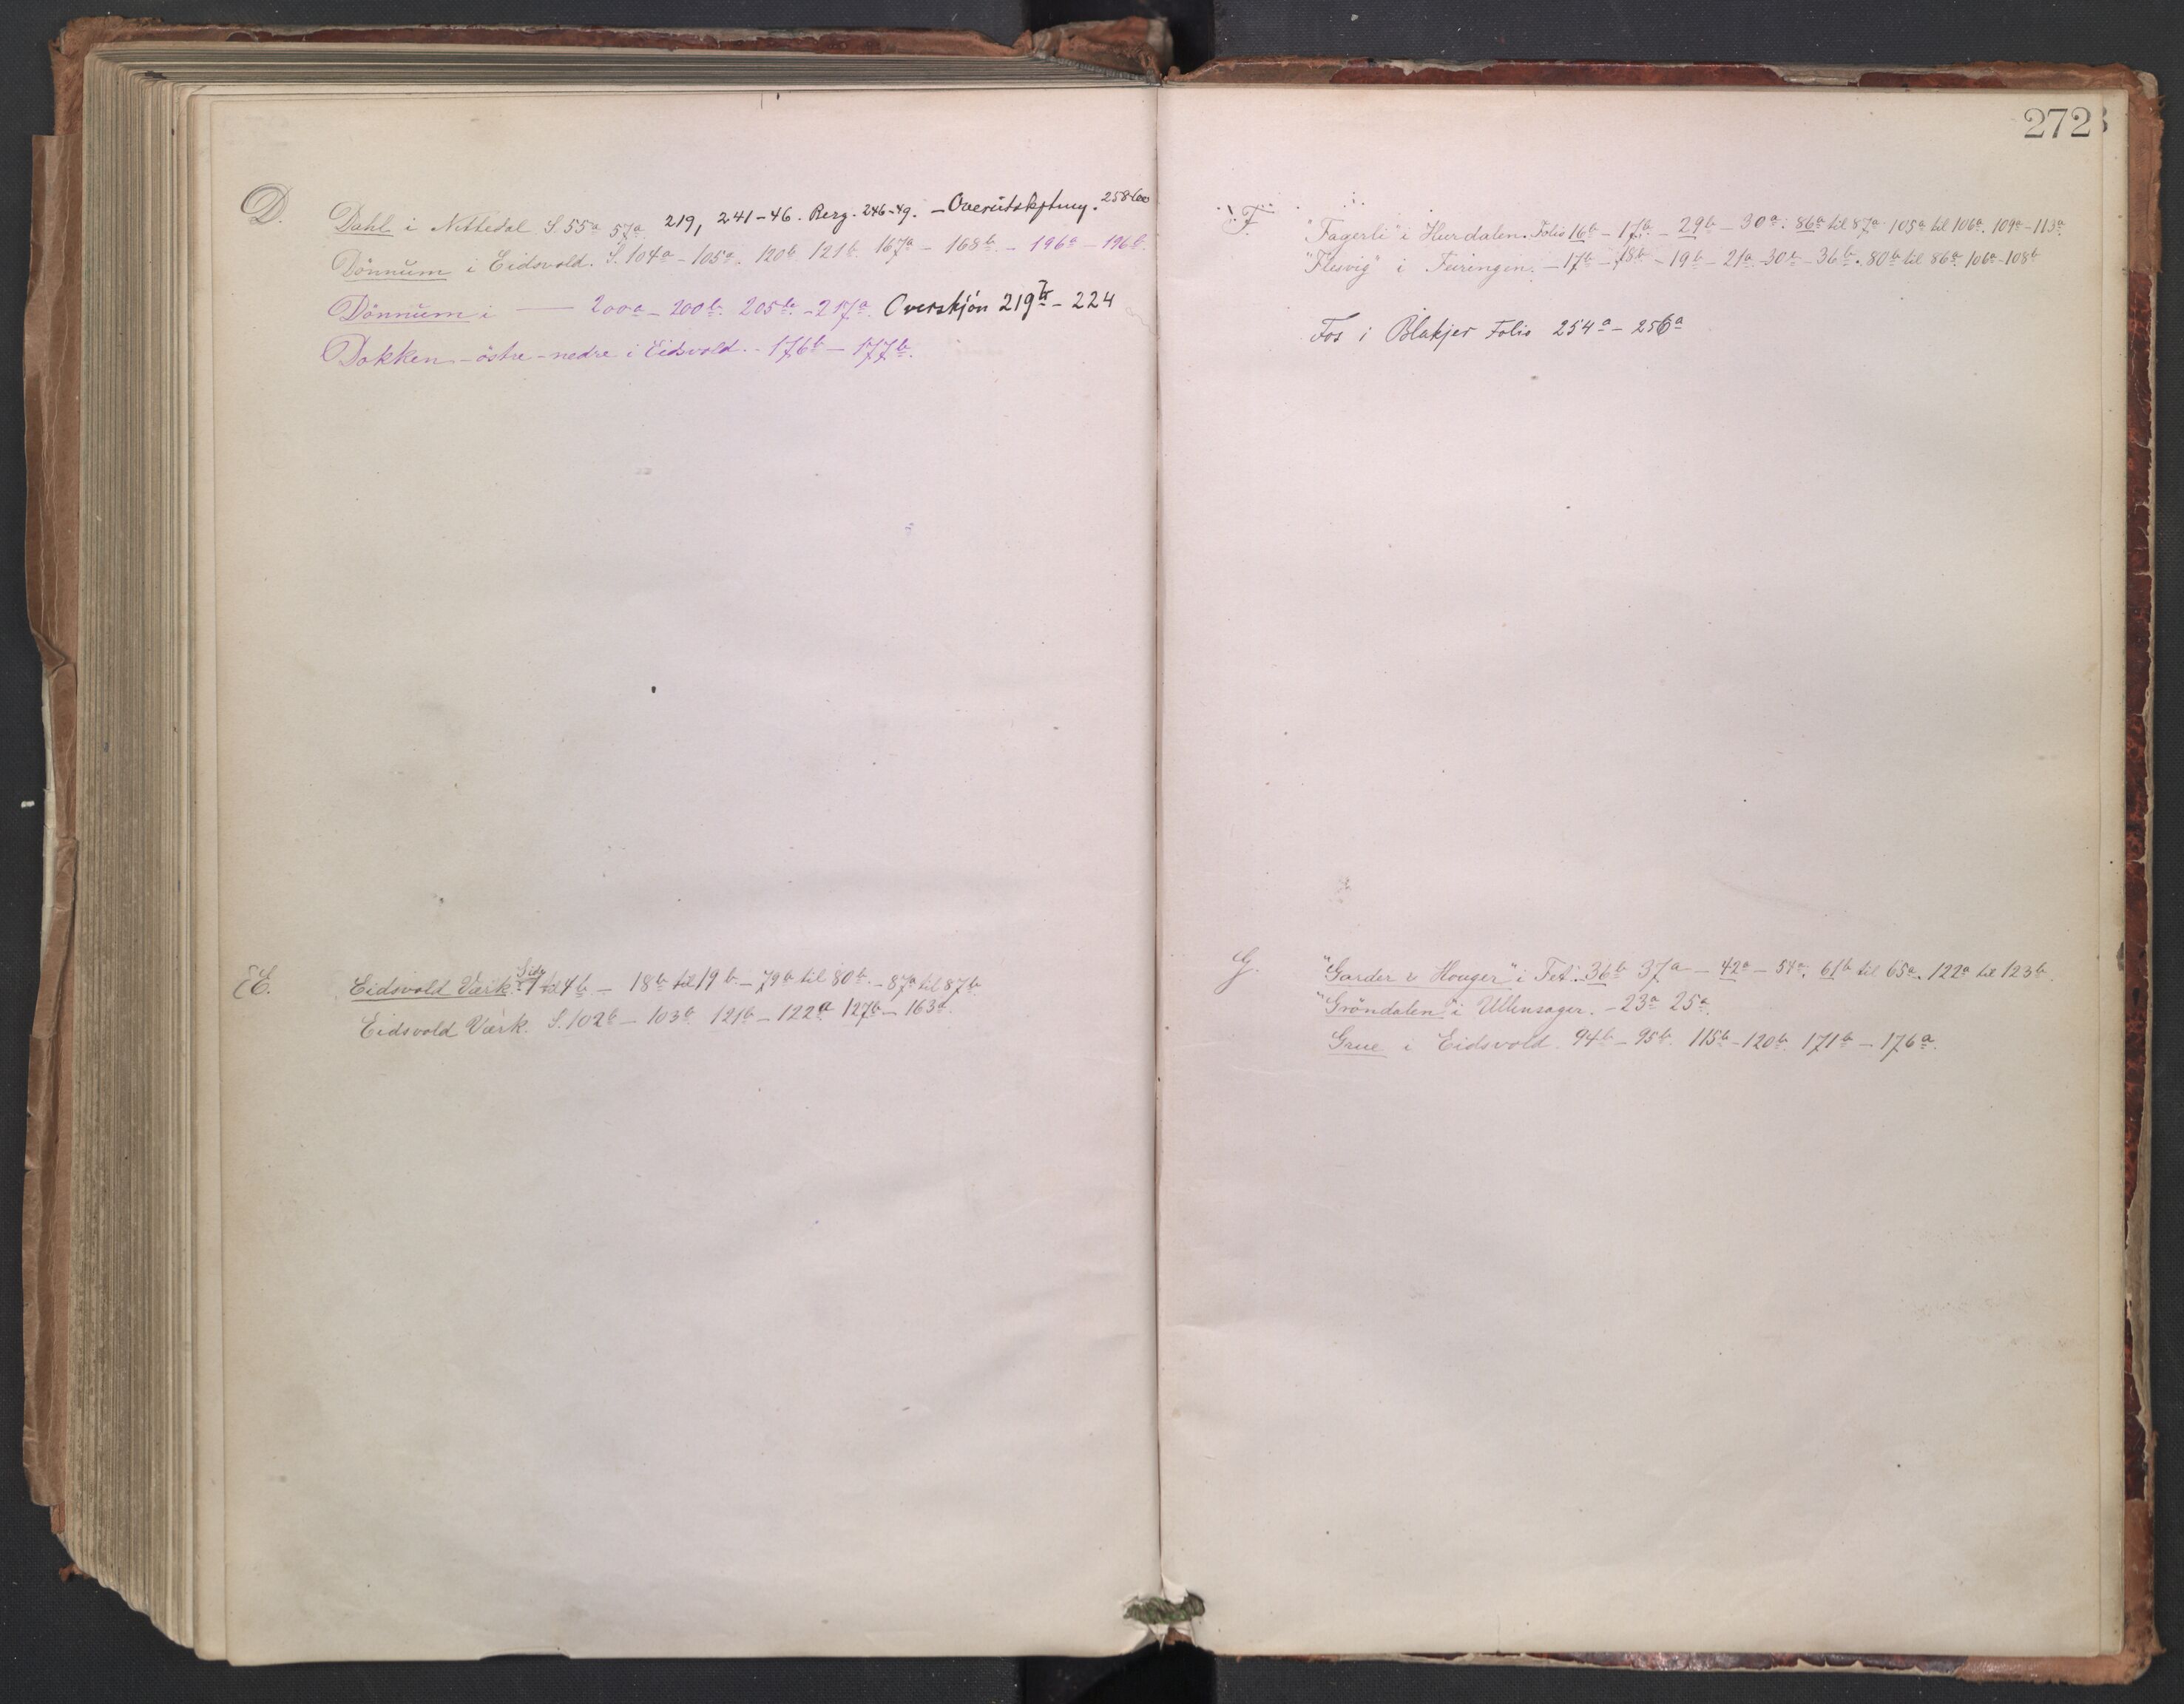 D. Dahl i Nittedal S. 55a 57a 219, 241-46. Berg. 246-49. - Overutskiftning. 258-60
Dönnum i Eidsvold. S. 104a - 105a. 120b 121b. 167a - 168b - 196a - 196b.
Dönnum i — 200a - 200b. 205b. - 217a. Overskjön 219b - 224
Dokken - östre - nedre i Eidsvold. - 176b - 177b.
E. Eidsvold Værk. Side 1 til 4b - 18b til 19b - 79b til 80b. - 87a til 87b
Eidsvold Værk. S. 102b - 103b 121b - 122a 127b - 163a.
272
F. "Fagerli" i Hurdalen. Folio 16b - 17b - 29b - 30a. 86a til 87a 105a til 106a. 109a - 113a.
"Flesvig" i Feiringen. - 17b - 18b - 19b - 21a - 30b - 36b. 80b til 86a. 106a - 108b
Fos i Blakjer Folio 254a - 256a
G. "Garder & Houger" i Fet. 36b 37a - 42a - 54a. 61b til 65a. 122a til 123b.
"Gröndalen" i Ullensager. - 23a 25a.
Grue i Eidsvold. 94b - 95b. 115b - 120b. 171b - 176a.